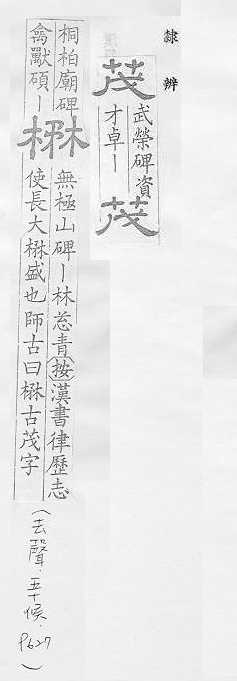 隸辨
茂
武榮碑資
才卓丨
茂
桐柏廟碑
禽獸碩丨
楙
無極山碑丨林忩青按漢書律歷志
使長大楙盛也師古曰楙古茂字
(去聲.五十候.P627)